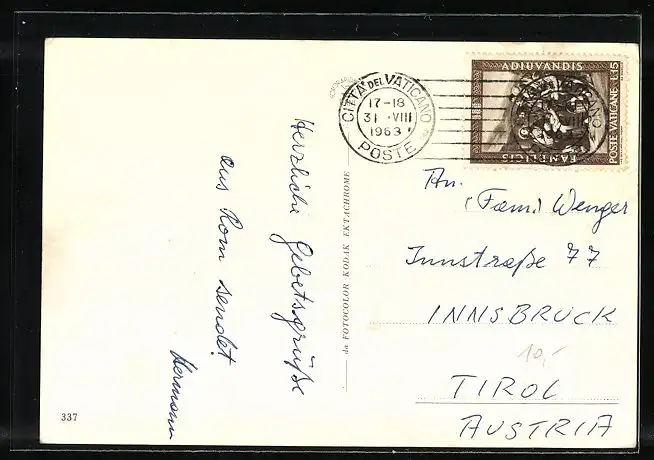 CITTÀ DEL VATICANO
17-18
31 · VIII
1963
POSTE
ADIUVANDIS
FAMELICIS
POSTE VATICANE L. 15
An.
Fam. Wenger
Innstraße 77
INNSBRUCK
10,-
TIROL
AUSTRIA
Herzliche Gebetsgrüße
aus Rom sendet
Hermann
da FOTOCOLOR KODAK EKTACHROME
337